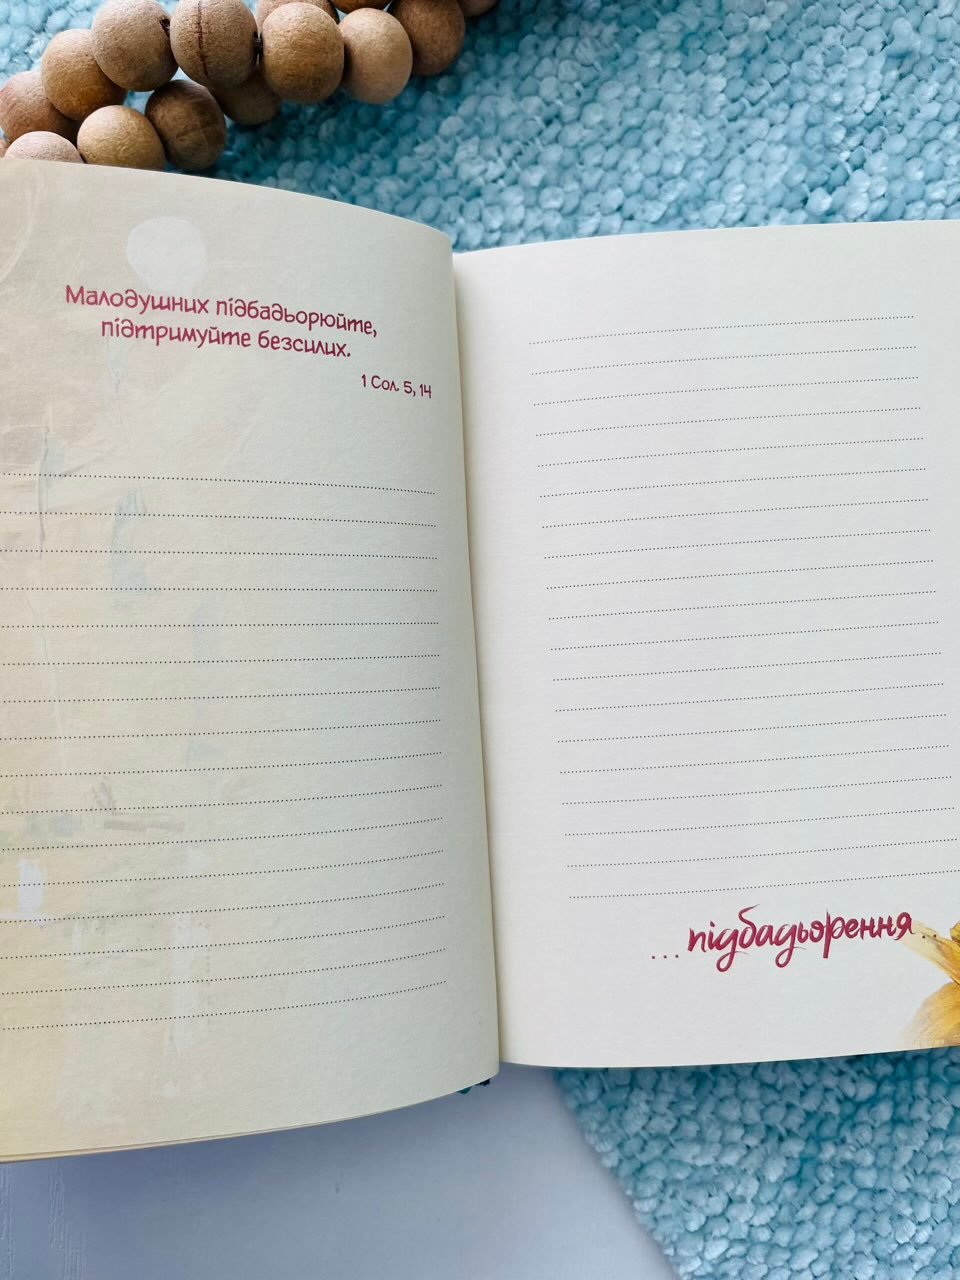 Малодушних підбадьорюйте,
підтримуйте безсилих.
1 Сол. 5, 14
...підбадьорення...